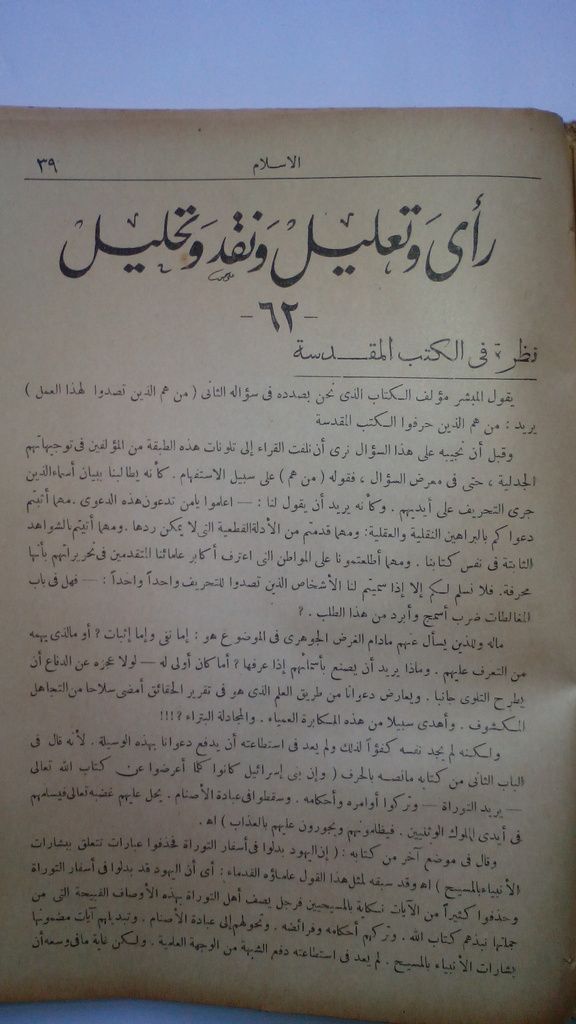 الاسلام ٣٩
رأى وتعليل ونقد وتحليل
- ٦٢ -
نظرة فى الكتب المقدسة
يقول المبشر مؤلف الكتاب الذى نحن بصدده فى سؤاله الثانى ( من هم الذين تصدوا لهذا العمل )
يريد : من هم الذين حرفوا الكتب المقدسة
وقبل أن نجيبه على هذا السؤال نرى أن نلفت القراء إلى تلونات هذه الطبقة من المؤلفين فى توجيهاتهم
الجدلية ، حتى فى معرض السؤال ، فقوله ( من هم ) على سبيل الاستفهام . كأنه يطالبنا ببيان أسماء الذين
جرى التحريف على أيديهم . وكأنه يريد أن يقول لنا : — اعلموا يامن تدعون هذه الدعوى . مهما أتيتم
دعواكم بالبراهين النقلية والعقلية : ومهما قدمتم من الأدلة القطعية التى لا يمكن ردها . ومهما أتيتم بالشواهد
الثابتة فى نفس كتابنا . ومهما أطلعتمونا على المواطن التى اعترف أكابر علمائنا المتقدمين فى تحريراتهم بأنها
محرفة . فلا نسلم لكم إلا إذا سميتم لنا الأشخاص الذين تصدوا للتحريف واحداً واحداً : — فهل فى باب
المغالطات ضرب أسمج وأبرد من هذا الطلب . ؟
ماله وللذين يسأل عنهم مادام الغرض الجوهرى فى الموضوع هو : إما نفى وإما إثبات ؟ أو مالذى يهمه
من التعرف عليهم . وماذا يريد أن يصنع بأسمائهم إذا عرفها ؟ أما كان أولى له — لولا عجزه عن الدفاع أن
يطرح التلوى جانبا . ويعارض دعوانا من طريق العلم الذى هو فى تقرير الحقائق أمضى سلاحا من التجاهل
المكشوف . وأهدى سبيلا من هذه المكابرة العمياء . والمجادلة البتراء ؟ !!!
ولكنه لم يجد نفسه كفؤاً لذلك ولم يعد فى استطاعته أن يدفع دعوانا بهذه الوسيلة . لأنه قال فى
الباب الثانى من كتابه مانصه بالحرف ( وإن بنى إسرائيل كانوا كلما أعرضوا عن كتاب الله تعالى
— يريد التوراة — وتركوا أوامره وأحكامه . وسقطوا فى عبادة الأصنام . يحل عليهم غضبه تعالى فيسلمهم
فى أيدى الملوك الوثنيين . فيظلمونهم ويجورون عليهم بالعذاب ) اه .
وقال فى موضع آخر من كتابه : ( إن اليهود بدلوا فى أسفار التوراة فحذفوا عبارات تتعلق ببشارات
الأنبياء بالمسيح ) اه وقد سبقه لمثل هذا القول علماؤه القدماء : أى أن اليهود قد بدلوا فى أسفار التوراة
وحذفوا كثيراً من الآيات نكاية بالمسيحيين فرجل يصف أهل التوراة بهذه الأوصاف القبيحة التى من
جملتها نبذهم كتاب الله . وتركهم أحكامه وفرائضه . وتحولهم إلى عبادة الأصنام . وتبديلهم آيات مضمونها
بشارات الأنبياء بالمسيح . لم يعد فى استطاعته دفع الشبهة من الوجهة العلمية . ولكن غاية مافى وسعه أن